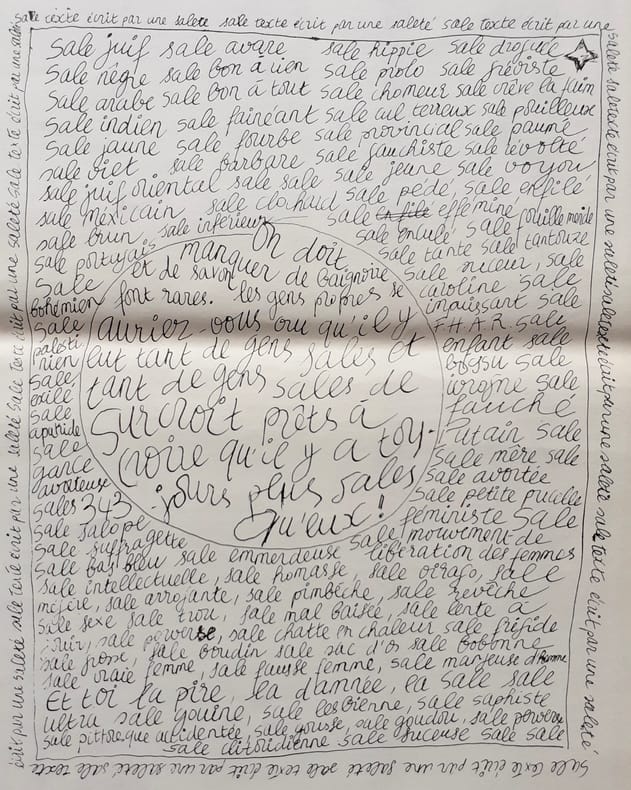 sale texte écrit par une saleté sale texte écrit par une saleté sale texte écrit par une
saleté sale texte écrit par une saleté sale texte écrit par une saleté sale texte écrit par une saleté
sale juif sale avare sale hippie sale drogué
sale nègre sale bon à rien sale prolo sale gréviste
sale arabe sale bon à tout sale chomeur sale crève la faim
sale indien sale fainéant sale cul terreux sale pouilleux
sale jaune sale fourbe sale provincial sale paumé
sale viet sale barbare sale gauchiste sale révolté
sale juif oriental sale sale sale jeune sale voyou
sale méxicain sale clochard sale pédé, sale enfilé
sale brun, sale inférieur sale efféminé
sale portugais sale enculé sale
sale tante sale tantouze
sale
bohémien
sale suceur, sale
caroline sale
impuissant sale
sale
palesti
nien
F.H.A.R. sale
enfant sale
bossu sale
sale
exilé
sale
apatride
ivrogne sale
fauché
sale
garce
avorteuse
putain sale
sale mère sale
sale avortée
On doit
manquer de baignoire
et de savon
font rares. les gens propres se
auriez-vous cru qu'il y
eut tant de gens sales et
tant de gens sales de
surcroît prêts à
croire qu'il y a tou-
jours plus sales
qu'eux!
sales 343
sale petite pucelle
sale salope
féministe sale
sale suffragette
sale mouvement de
sale bas bleu sale emmerdeuse libération des femmes
sale intellectuelle, sale homasse, sale virago, sale
mégère, sale arrogante, sale pimbêche, sale revêche
sale sexe sale trou, sale mal baisée, sale lente à
jouir, sale perverse, sale chatte en chaleur sale frigide
sale grosse, sale boudin sale sac d'os sale bobonne
sale vraie femme, sale fausse femme, sale mangeuse d'homme
Et toi la pire, la damnée, la sale sale
ultra sale gouine, sale lesbienne, sale saphiste
sale pittoresque accidentée, sale gousse, sale goudou, sale perverse
sale clitoridienne sale suceuse sale sale
sale texte écrit par une saleté sale texte écrit par une saleté sale texte
écrit par une saleté sale texte écrit par une saleté sale texte écrit par une saleté sale texte écrit par une saleté